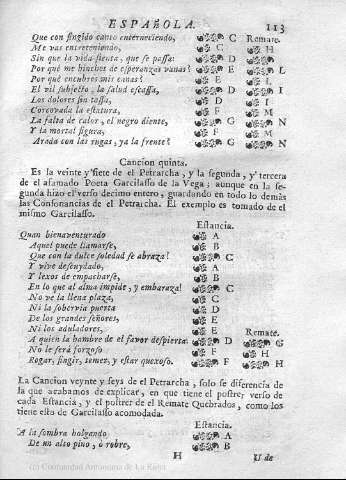 ESPAÑOLA. 113
Que con fingido canto enterneciendo, C Remate.
Me vas entreteniendo, C H
Sin que la vida sienta, que se passa: D I
Por qué me hinches de esperanzas vanas? E L
Por qué encubres mis canas? E L
El vil subjecto, la salud escassa, D I
Los dolores sin tassa, D I
Corcovada la estatura, F M
La falta de calor, el negro diente, G N
Y la mortal figura, F M
Arada con las rugas, ya la frente? G N
Cancion quinta.
Es la veinte y siete de el Petrarcha, y la segunda, y tercera
de el afamado Poeta Garcilasso de la Vega; aunque en la se-
gunda hizo el verso decimo entero, guardando en todo lo demàs
las Consonancias de el Petrarcha. El exemplo es tomado de el
mismo Garcilasso.
Estancia.
Quan bienaventurado A
Aquel puede llamarse, B
Que con la dulce soledad se abraza! C
Y vive descuydado, A
Y lexos de empacharse, B
En lo que al alma impide, y embaraza! C
No ve la llena plaza, C
Ni la sobervia puerta D
De los grandes señores, E
Ni los aduladores, E Remate.
A quien la hambre de el favor despierta: D G
No le será forzoso F H
Rogar, fingir, temer, y estar quexoso. F H
La Cancion veynte y seys de el Petrarcha, solo se diferencia de
la que acabamos de explicar, en que tiene el postrer verso de
cada Estancia, y el postrer de el Remate Quebrados, como los
tiene esta de Garcilasso acomodada.
Estancia.
A la sombra holgando A
De un alto pino, ò robre, B
H U de
(c) Comunidad Autónoma de La Rioja